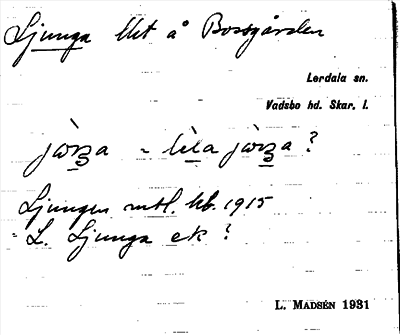 Ljunga lht å Bossgården
Lerdala sn.
Vadsbo hd. Skar. l.
= lìla
?
Ljungen mtl. kb. 1915
= L. Ljunga ek ?
L. MADSÉN 1931